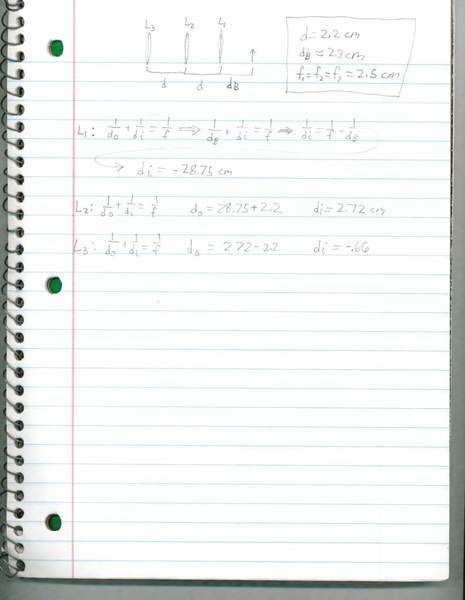 L₃ L₂ L₁
d d dB
d = 2.2 cm
dB = 2.3 cm
f₁ = f₂ = f₃ = 2.5 cm
L₁: 1/do + 1/di = 1/f ⇒ 1/dB + 1/di = 1/f ⇒ 1/di = 1/f - 1/dB
→ di = -28.75 cm
L₂: 1/do + 1/di = 1/f do = 28.75 + 2.2 di = 2.72 cm
L₃: 1/do + 1/di = 1/f do = 2.72 - 2.2 di = -.66